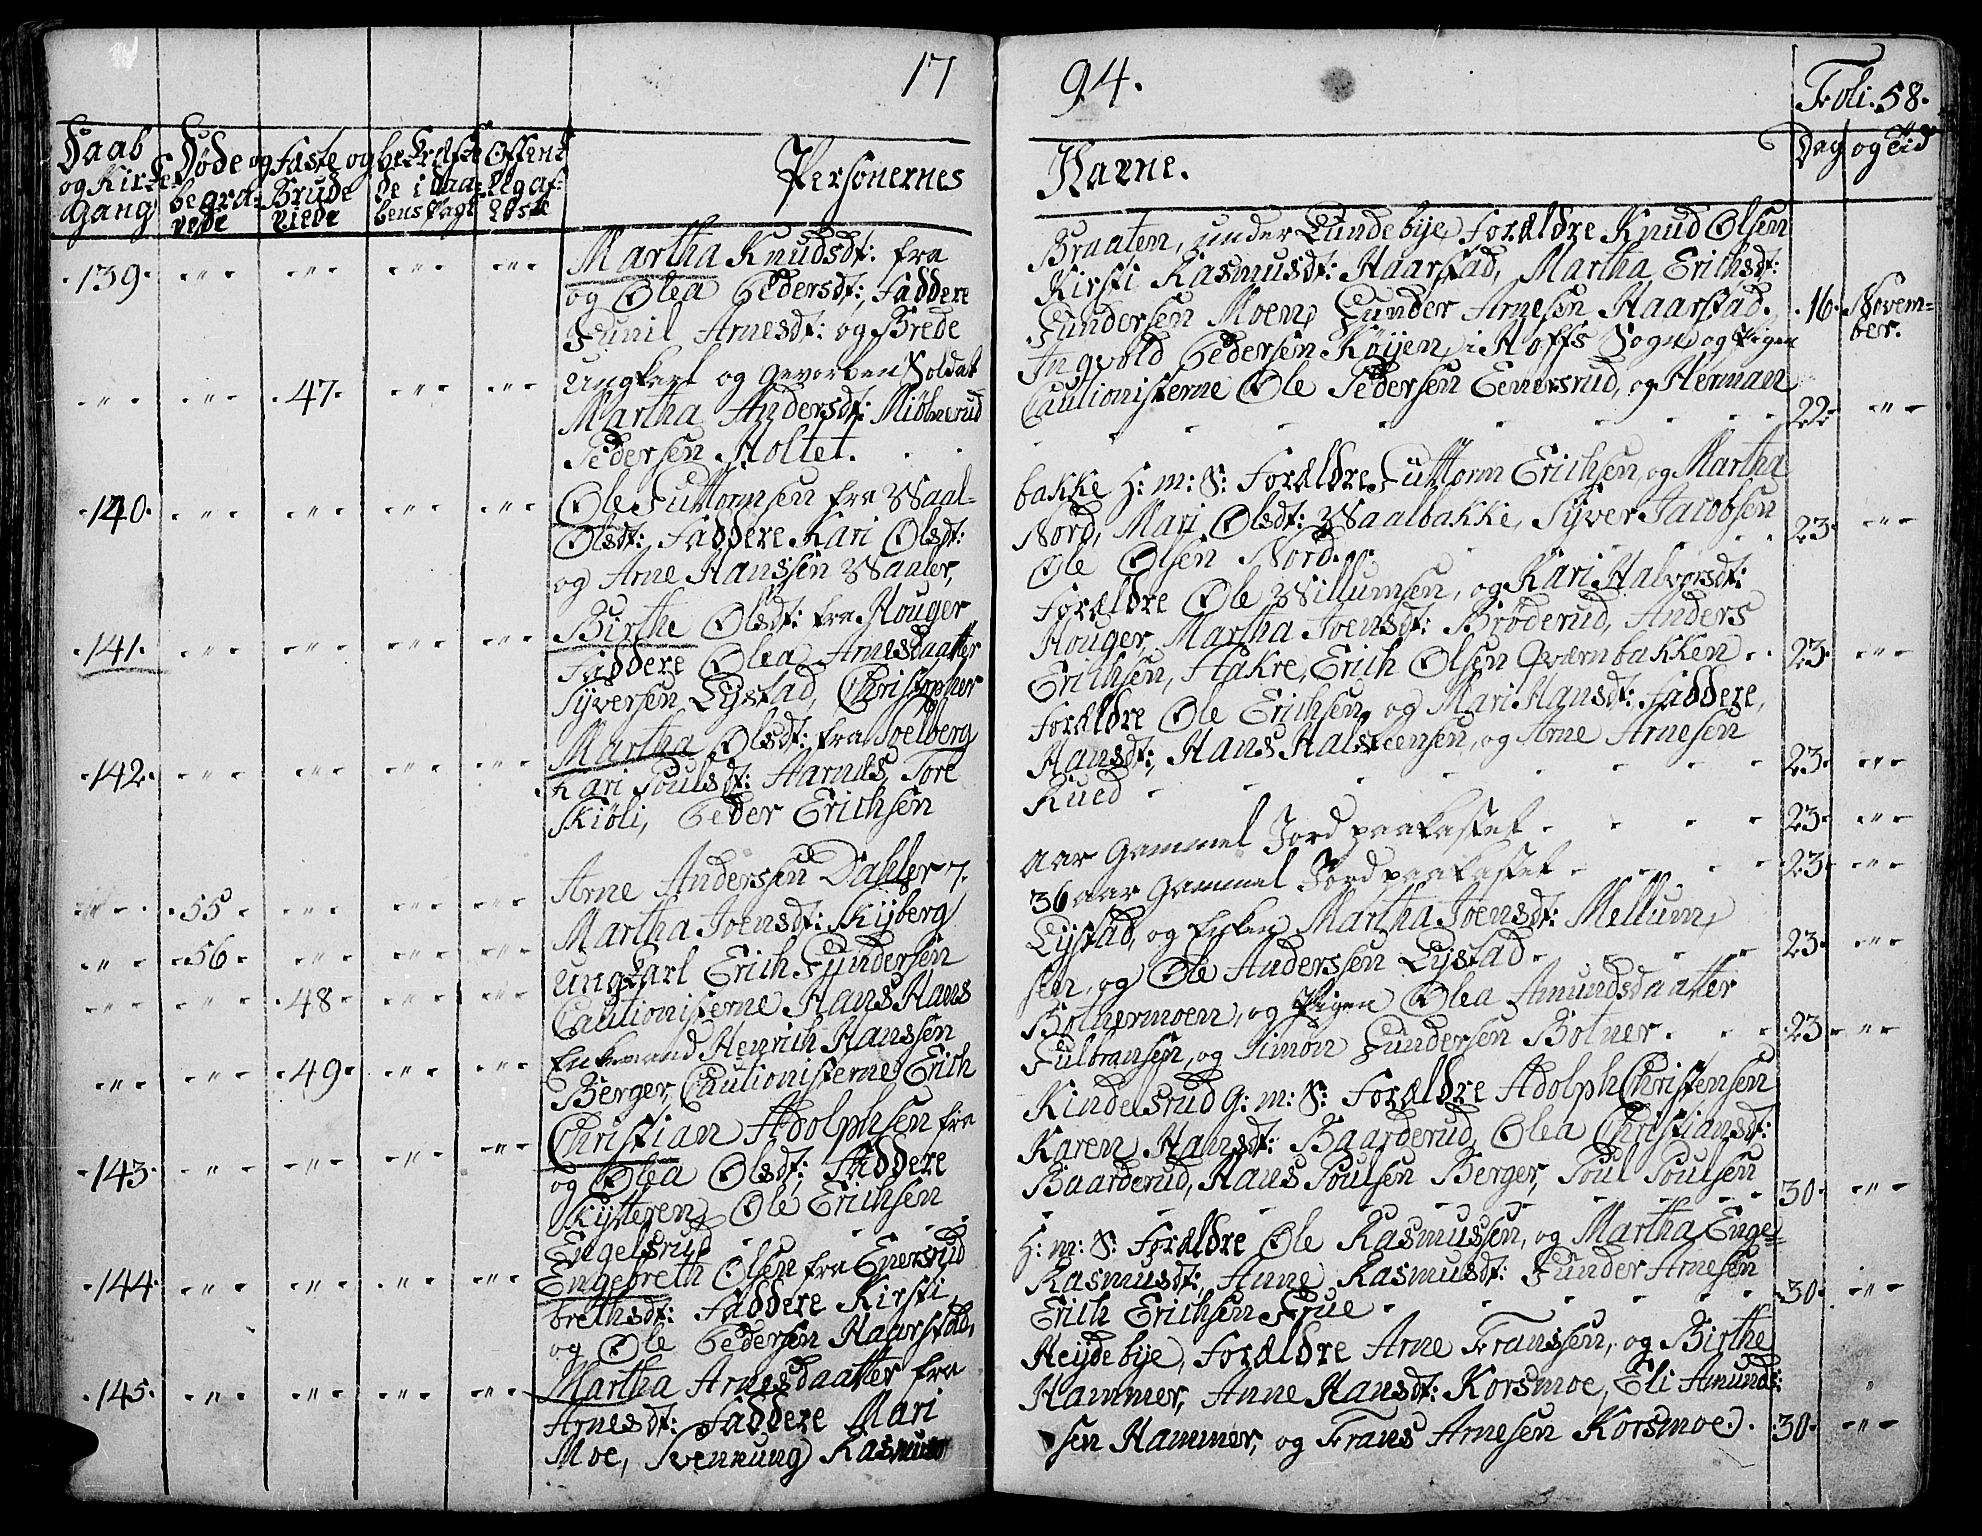 1794.
Foli: 58.
Daab og Kirke Gang
Døde og begravede
Fæste og Brude viede
bekræftede i Daabens Pagt
Offentlig afløste
Personernes Navne.
Dag og Tid
139. Martha Knudsdt: fra Braaten, under Lundebye, Forældre Knud Olsen
og Olea Pedersdt: Faddere Kirsti Rasmusdt: Haarstad, Martha Erichsdt:
Gunil Arnesdt: og Brede Gundersen Moen, Gunder Arnesen Haarstad. 16. November.
47. Ungkarl og Gevorben Soldat Ingvold Pedersen Køijen i Hoffs Sogn og Pigen
Martha Andersdt: Miølnerud Cautionisterne Ole Pedersen Eenersrud, og Herman
Pedersen Holtet. 22.
140. Ole Guttormsen fra Waal-bakke H: m: S: Forældre Guttorm Erichsen, og Martha
Olsdt: Faddere Kari Olsdt: Nord, Mari Olsdt: Waalbakke, Syver Jacobsen
og Arne Hanssen Waaler, Ole Olsen Nord. 23.
141. Birthe Olsdt: fra Houger Forældre Ole Willumsen, og Kari Halvorsdt:
Faddere Olea Arnesdaatter Houger, Martha Joensdt: Brøderud, Anders
Syversen Lystad, Christopher Erichsen, Hakre, Erich Olsen Qværnbakken 23.
142. Martha Olsdt: fra Soelberg Forældre Ole Erichsen, og Mari Hansdt: Faddere,
Kari Poulsdt: Aarnæs, Tore Hansdt:, Hans Halsteensen, og Arne Arnesen
Skiøli, Peder Erichsen Rued 23.
55. Arne Andersen Dahler 7. aar Gammel Jord paakastet 23.
56. Martha Joensdt: Kyberg 36 aar Gammel Jord paakastet 23.
48. Ungkarl Erich Gundersen Lystad, og Enken Martha Joensdt: Mellum,
Cautionisterne Hans Hans sen, og Ole Anderssen Lystad 23.
49. Enkemand Henrich Hanssen Bolnermoen, og Pigen Olea Amundsdaatter
Berger, Cautionisterne Erich Gulbransen, og Simon Gundersen Bolner 23.
143. Christian Adolphsen fra Kindelsrud G: m: S: Forældre Adolph Christensen
og Olea Olsdt: Faddere Karen Hansdt: Baarderud, Olea Christiansdt:
Skytteren, Ole Erichsen Baarderud, Hans Poulsen Berger, Poul Poulsen
Engelsrud 30.
144. Engebreth Olsen fra Enersrud H: m: S: Forældre Ole Rasmussen, og Martha Enge=
brethsdt: Faddere Kirsti Rasmusdt:, Anne Rasmusdt: Gunder Arnesen
og Ole Pedersen Haarstad, Erich Erichsen Frue 30.
145. Martha Arnesdaatter fra Heydebye, Forældre Arne Franssen, og Birthe
Arnesdt: Faddere Mari Hammer, Anne Hansdt: Korsmoe, Eli Amunds:
Moe, Svennung Rasmus sen Hammer, og Frans Arnesen Korsmoe. 30.